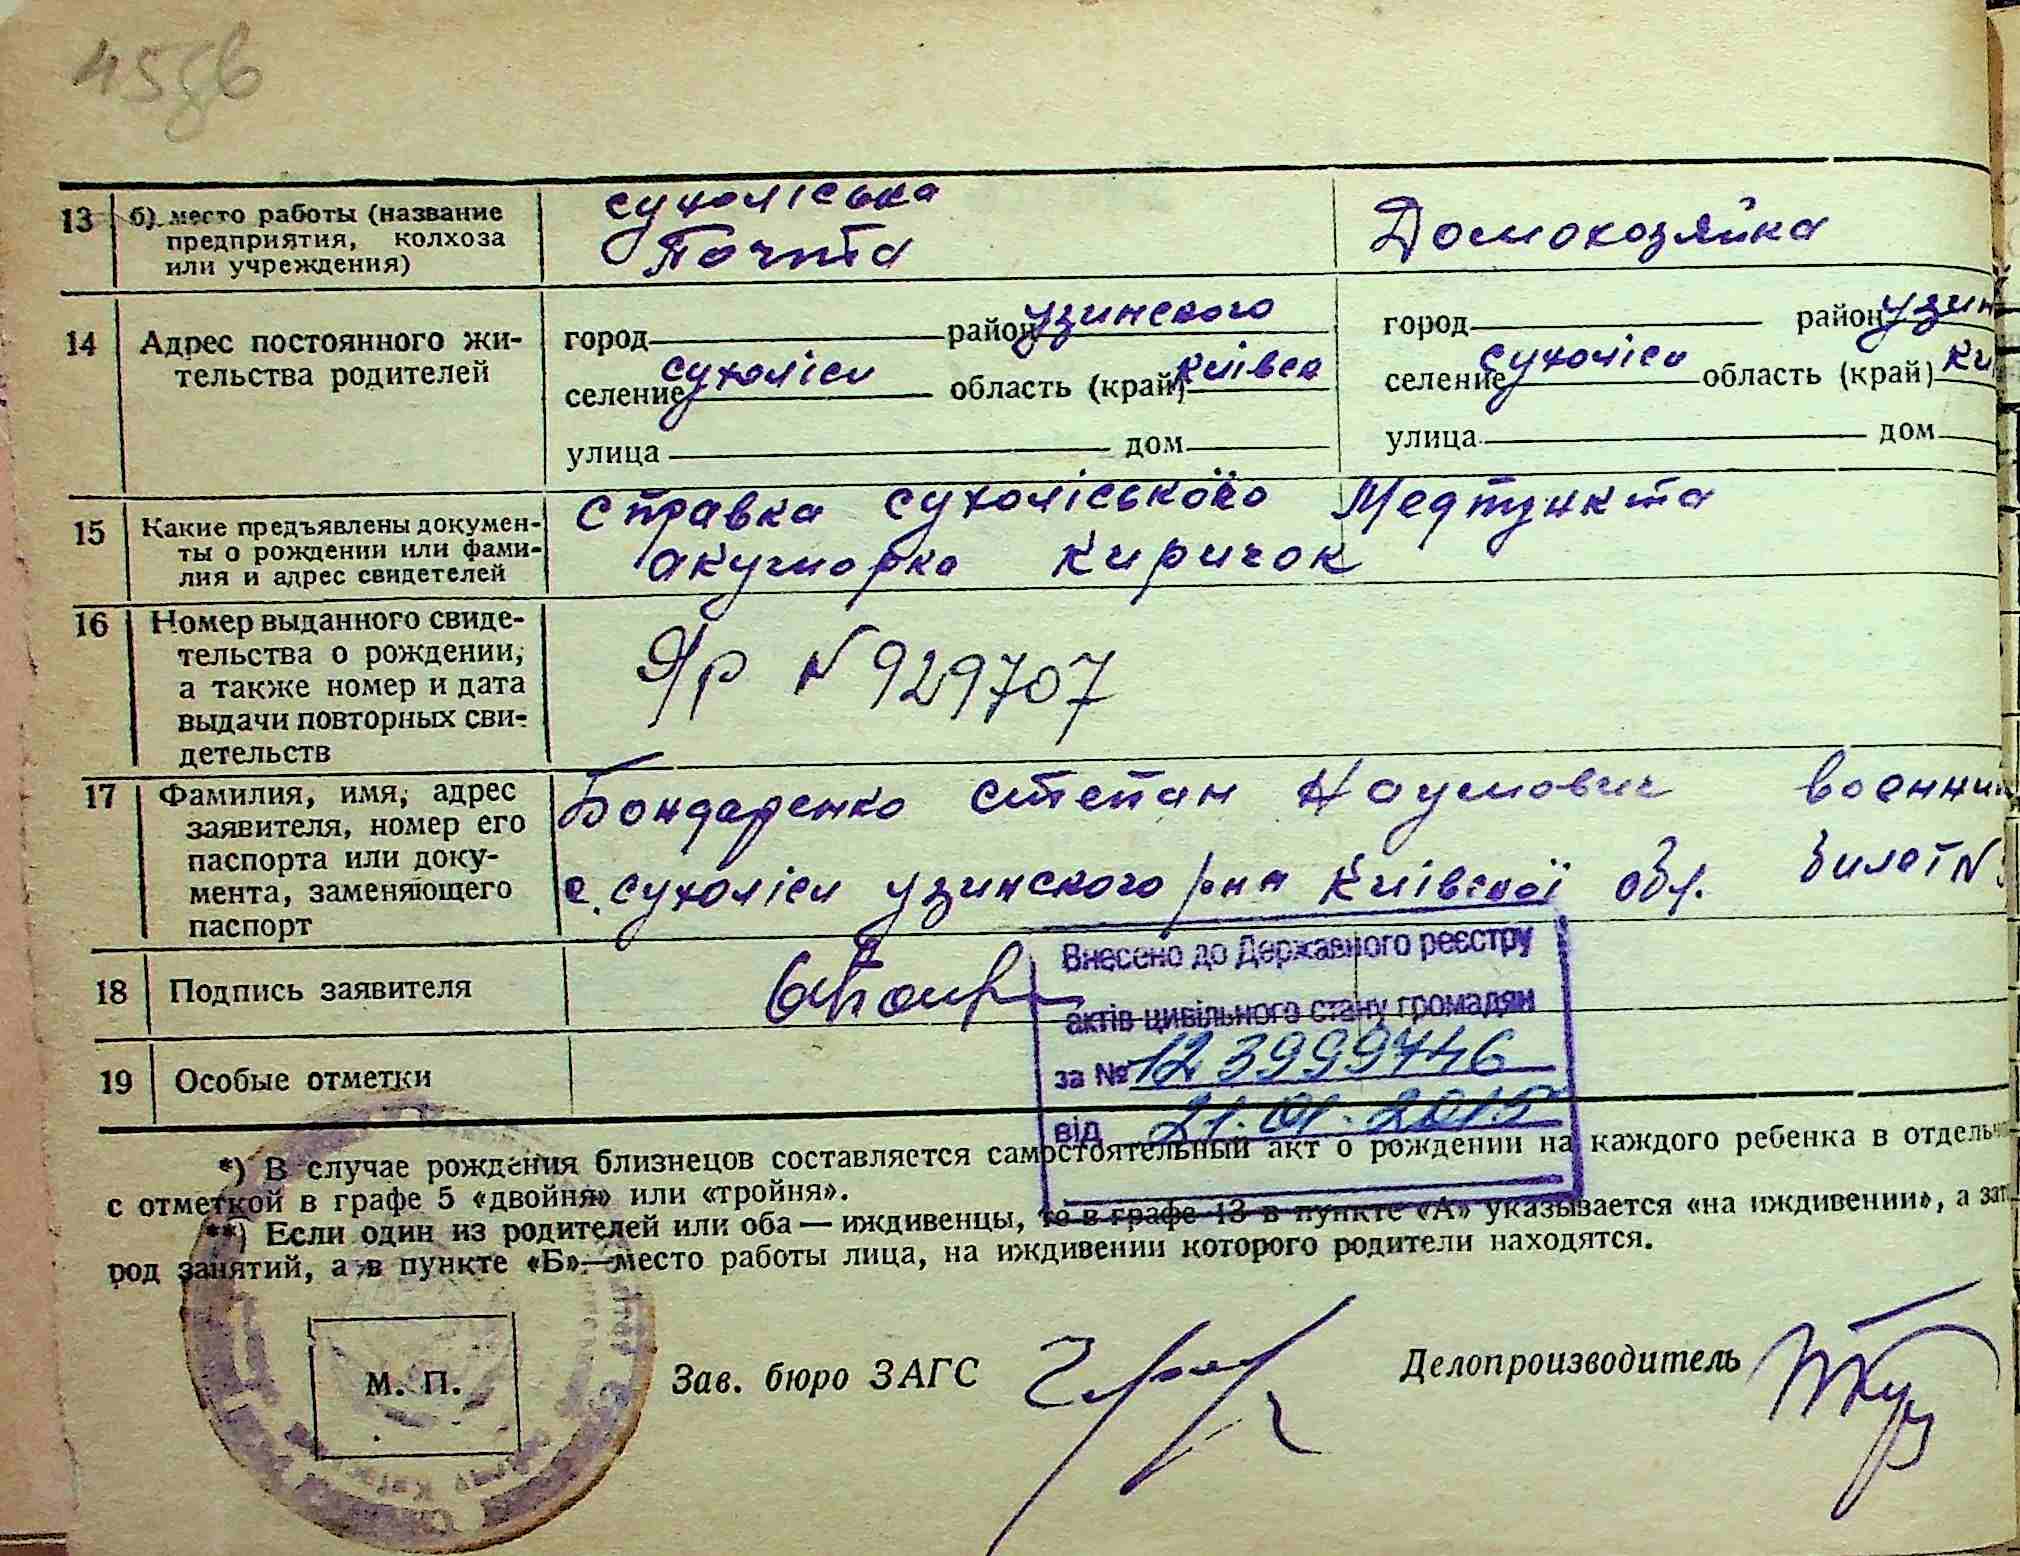 13 б) место работы (название предприятия, колхоза или учреждения)
сухоліська
Почта
Домохозяйка
14 Адрес постоянного жи-
тельства родителей
город район узинского
селение сухоліси область (край) київск
улица дом
город район узин
селение сухоліси область (край) ки
улица дом
15 Какие предъявлены докумен-
ты о рождении или фами-
лия и адрес свидетелей
справка сухоліського Медпункта
акушорка Киричок
16 Номер выданного свиде-
тельства о рождении,
а также номер и дата
выдачи повторных сви-
детельств
Яр N 929707
17 Фамилия, имя, адрес
заявителя, номер его
паспорта или доку-
мента, заменяющего
паспорт
Бондаренко степан Наумович военни
с. сухоліси узинского р-на Київскої обл. билет N
18 Подпись заявителя
19 Особые отметки
Внесено до Державного реєстру
актів цивільного стану громадян
за № 123999746
від 21.01.2015
*) В случае рождения близнецов составляется самостоятельный акт о рождении на каждого ребенка в отдельн
с отметкой в графе 5 «двойня» или «тройня».
**) Если один из родителей или оба — иждивенцы, то в графе 13 в пункте «А» указывается «на иждивении», а зат
род занятий, а в пункте «Б»—место работы лица, на иждивении которого родители находятся.
М. П.
Зав. бюро ЗАГС
Делопроизводитель